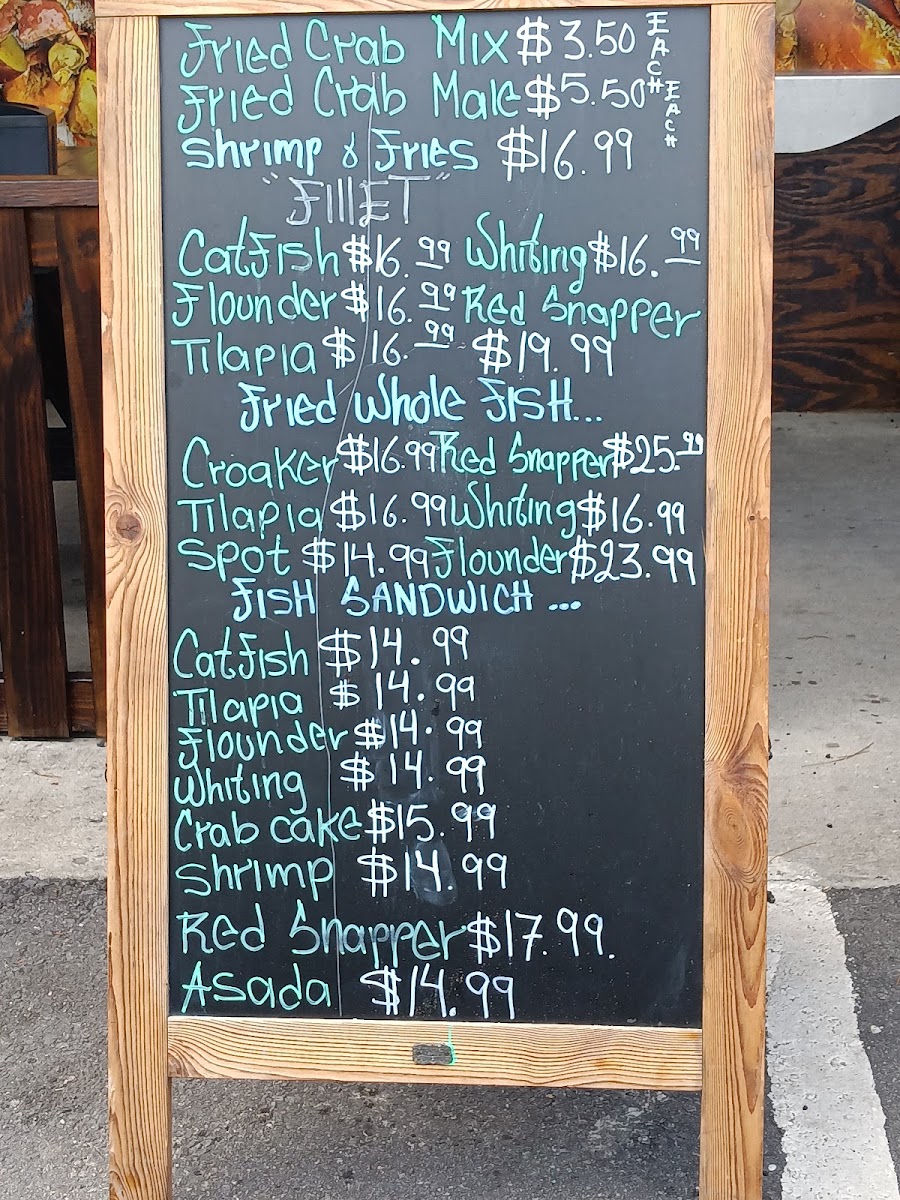 Fried Crab Mix $3.50 EACH
Fried Crab Male $5.50 EACH
Shrimp & Fries $16.99
"FIllET"
Catfish $16.99 Whiting $16.99
Flounder $16.99 Red Snapper
Tilapia $16.99 $19.99
Fried Whole FISH...
Croaker $16.99 Red Snapper $25.99
Tilapia $16.99 Whiting $16.99
Spot $14.99 Flounder $23.99
FISH SANDWICH...
Catfish $14.99
Tilapia $14.99
Flounder $14.99
Whiting $14.99
Crab cake $15.99
Shrimp $14.99
Red Snapper $17.99.
Asada $14.99